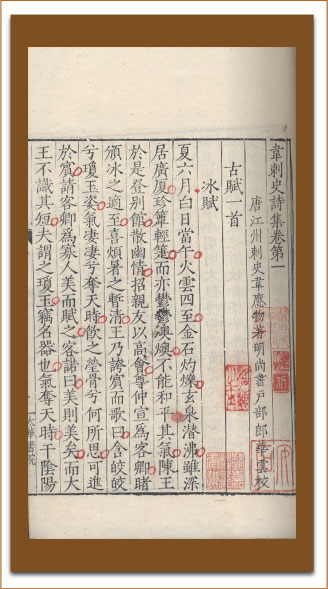 韋刺史詩集卷第一
唐江州刺史韋應物著明尚書戶部郎華雲校
古賦一首
冰賦
夏六月白日當午火雲四至金石灼爍玄泉潛沸雖深
居廣厦珍簟輕箑而亦鬱鬱燠燠不能和平其氣陳王
於是登別館散幽情招親友以高會尊仲宣爲客卿睹
頒冰之適至喜煩暑之暫清王乃誇賓而歌曰含皎皎
兮瓊玉姿氣凄凄兮奪天時飲之瑩骨兮何所思可進
於賓請客卿爲寡人美而賦之客諾曰美則美矣而大
王不識其短夫謂之瓊玉竊名器也氣奪天時干陰陽
太華書院